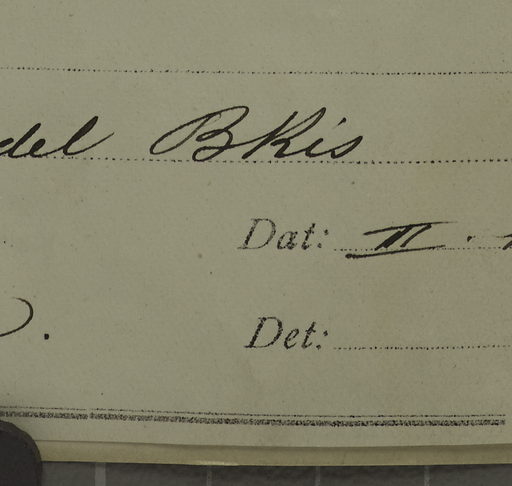 del BKis
Dat: II.
Det:
.